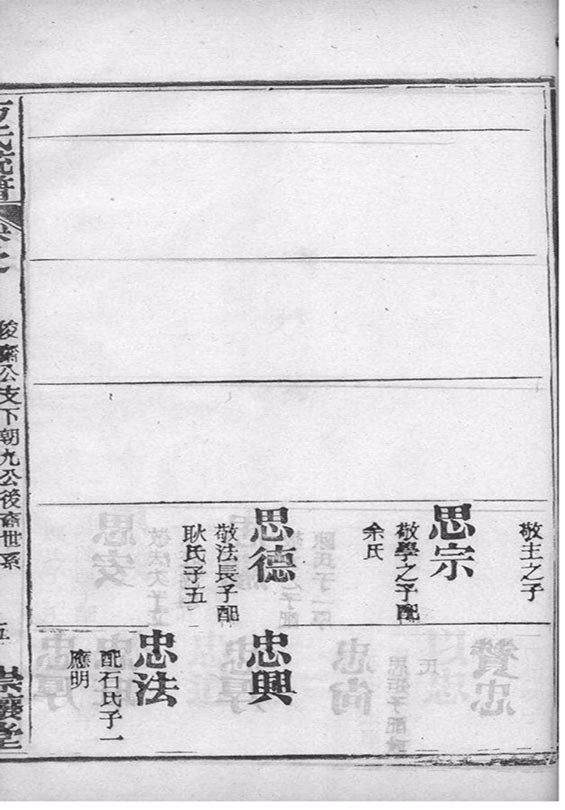 敬主之子
思宗
敬學之子配
余氏
思德
敬法長子配
耿氏子五
忠興
忠法
配石氏子一
應明
方氏統譜
卷之
後裔公支下朝九公後裔世系
五
崇讓堂